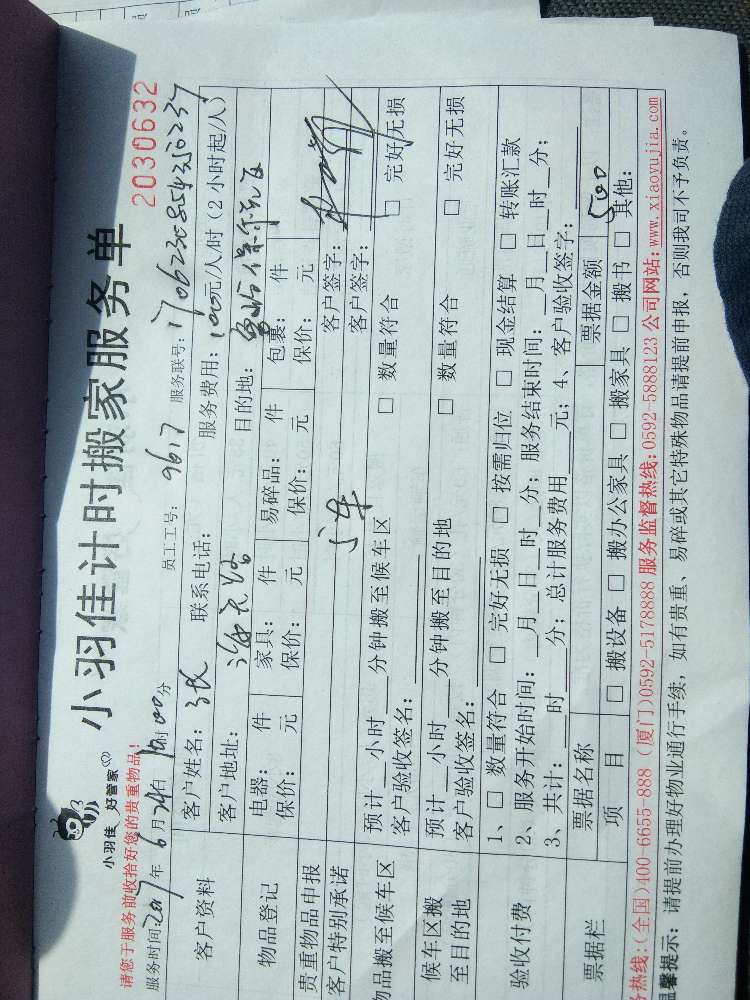 小羽佳 好管家
小羽佳计时搬家服务单
2030632
请您于服务前收拾好您的贵重物品!
服务时间:2017年6月24日10时00分 员工工号:9617 服务联号:
客户资料 客户姓名:张 联系电话: 服务费用:100元/人/时(2小时起/人)
客户地址: 目的地:
物品登记 电器: 件 家具: 件 易碎品: 件 包裹: 件
保价: 元 保价: 元 保价: 元 保价: 元
贵重物品申报 客户签字:
客户特别承诺 客户签字:
物品搬至候车区 预计__小时__分钟搬至候车区 □ 数量符合 □ 完好无损
客户验收签名:
候车区搬至目的地 预计__小时__分钟搬至目的地 □ 数量符合 □ 完好无损
客户验收签名:
验收付费 1、□ 数量符合 □ 完好无损 □ 按需归位 □ 现金结算 □ 转账汇款
2、服务开始时间:__月__日__时__分; 服务结束时间:__月__日__时__分;
3、共计:__时__分; 总计服务费用__元; 4、客户验收签字:
票据栏 票据名称 票据金额 500
项 目 □ 搬设备 □ 搬办公家具 □ 搬家具 □ 搬书 □ 其他:
务热线:(全国)400-6655-888 (厦门)0592-5178888 服务监督热线:0592-5888123 公司网站:www.xiaoyujia.com
温馨提示:请提前办理好物业通行手续,如有贵重、易碎或其它特殊物品请提前申报,否则我司不予负责。